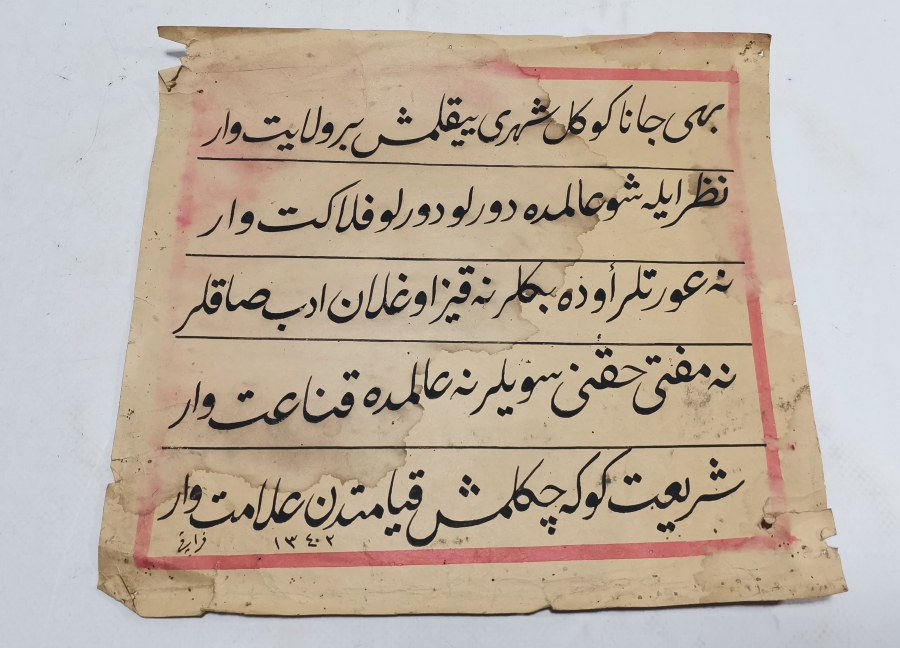 بهی جانا کوکل شهری ییقلمش بر ولایت وار
نظر ایله شو عالمده دورلو دورلو فلاکت وار
نه عورتلر أوده بکلر نه قیز اوغلان ادب صاقلر
نه مفتی حقنی سویلر نه عالمده قناعت وار
شریعت کوکه چکلمش قیامتدن علامت وار